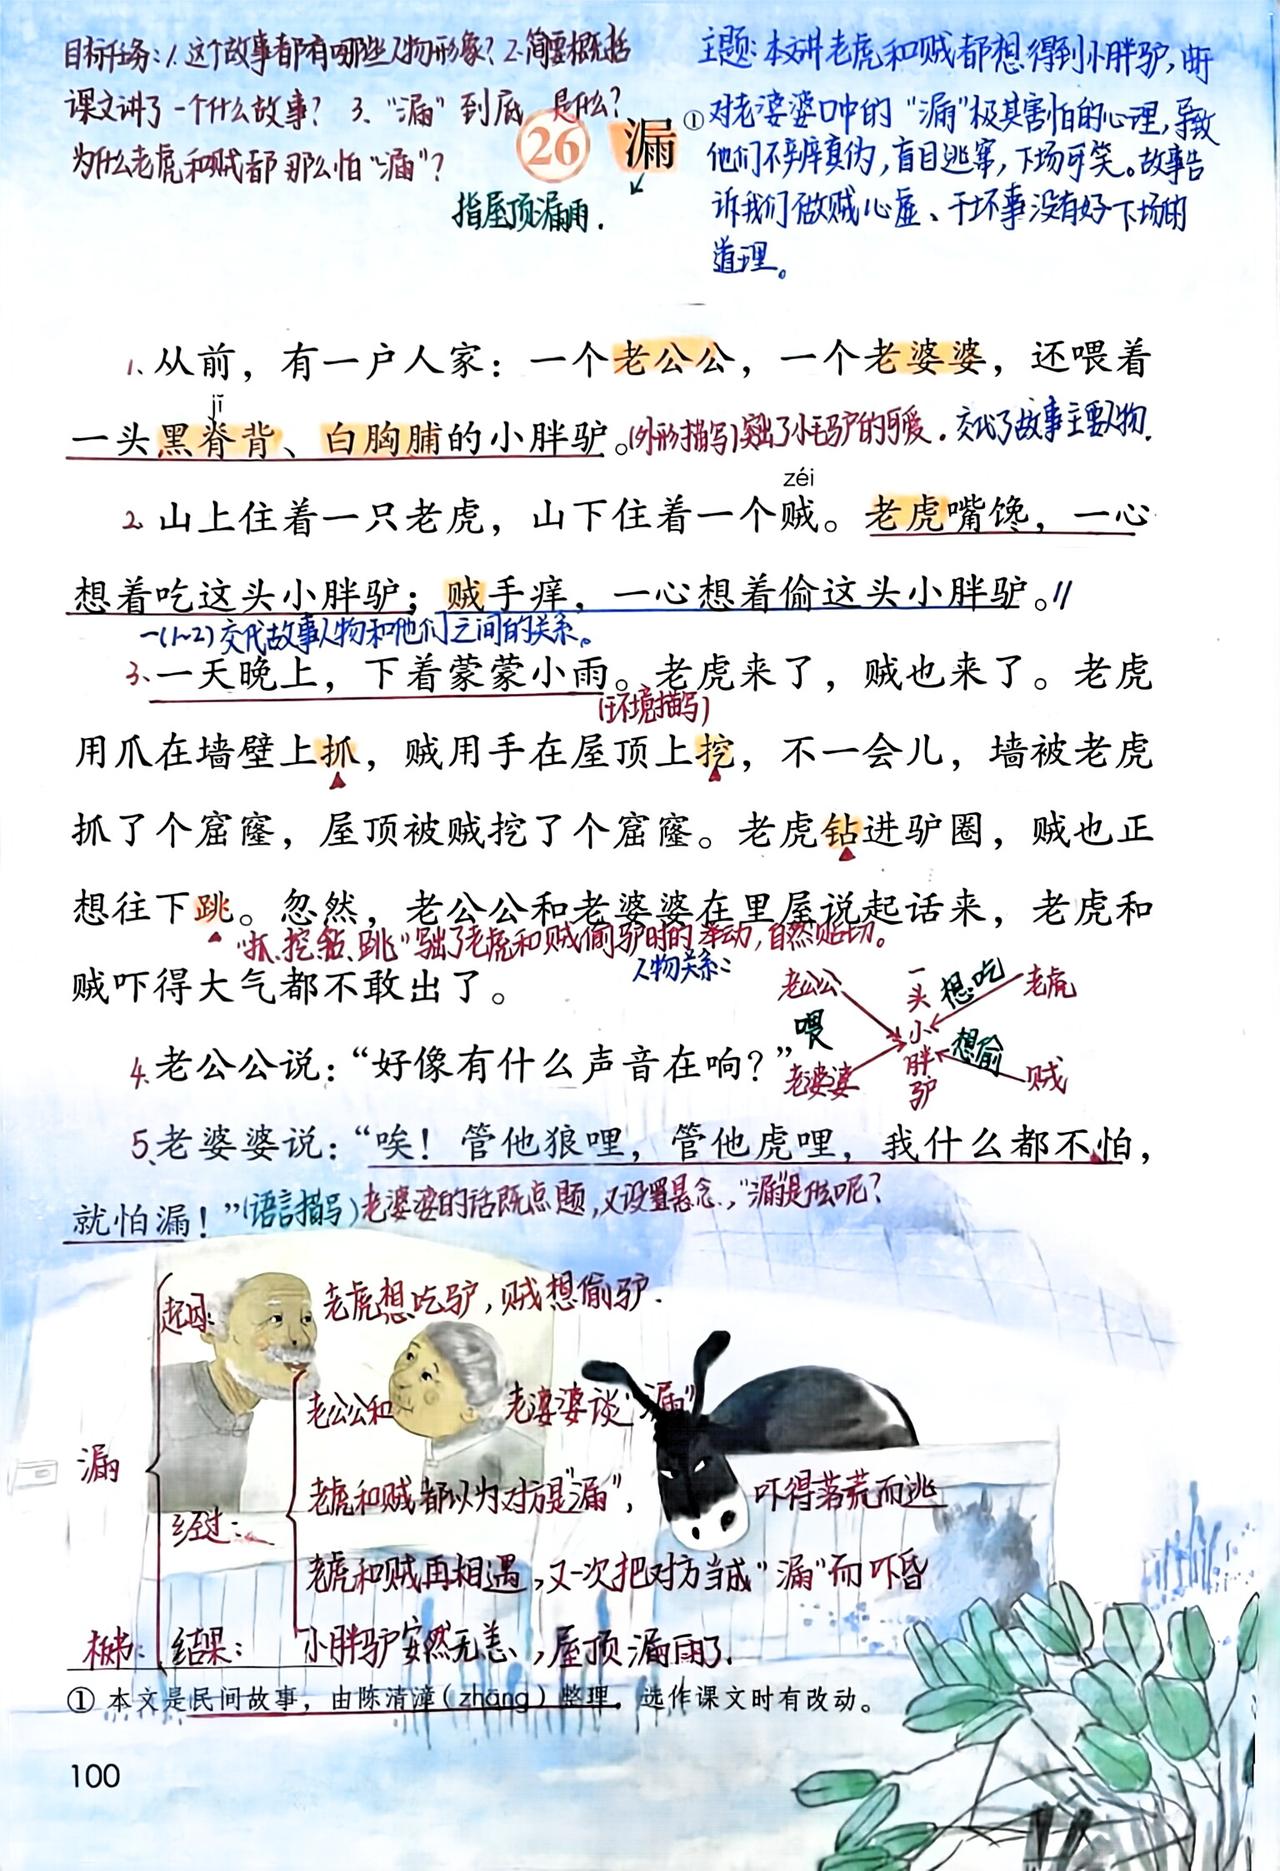 目标任务：1.这个故事都有哪些人物形象？2.简要概括
课文讲了一个什么故事？ 3、“漏”到底 是什么？
为什么老虎和贼都那么怕“漏”？
26 漏①
指屋顶漏雨.
主题：本文讲老虎和贼都想得到小胖驴，听
对老婆婆口中的“漏”极其害怕的心理，导致
他们不辨真伪，盲目逃窜，下场可笑。故事告
诉我们做贼心虚、干坏事没有好下场的
道理。
1.从前，有一户人家：一个老公公，一个老婆婆，还喂着
jǐ
一头黑脊背、白胸脯的小胖驴。(外形描写)突出了小毛驴的可爱.交代了故事主要人物.
zéi
2.山上住着一只老虎，山下住着一个贼。老虎嘴馋，一心
想着吃这头小胖驴；贼手痒，一心想着偷这头小胖驴。//
一(1~2)交代故事人物和他们之间的关系。
3.一天晚上，下着蒙蒙小雨。老虎来了，贼也来了。老虎
(环境描写)
用爪在墙壁上抓，贼用手在屋顶上挖，不一会儿，墙被老虎
抓了个窟窿，屋顶被贼挖了个窟窿。老虎钻进驴圈，贼也正
想往下跳。忽然，老公公和老婆婆在里屋说起话来，老虎和
“抓、挖、钻、跳”写出了老虎和贼偷驴时的举动，自然贴切。
贼吓得大气都不敢出了。
人物关系：
老公公 喂 老婆婆 一头小胖驴 想吃 老虎 想偷 贼
4.老公公说：“好像有什么声音在响？”
5.老婆婆说：“唉！管他狼哩，管他虎哩，我什么都不怕，
就怕漏！”(语言描写)老婆婆的话既点题，又设置悬念，“漏”是什么呢？
起因： 老虎想吃驴，贼想偷驴.
老公公和 老婆婆谈“漏”
漏
老虎和贼都以为对方是“漏”， 吓得落荒而逃
经过：
老虎和贼再相遇，又一次把对方当成“漏”而吓昏
板书： 结果： 小胖驴安然无恙，屋顶漏雨了.
① 本文是民间故事，由陈清漳（zhāng）整理，选作课文时有改动。
100